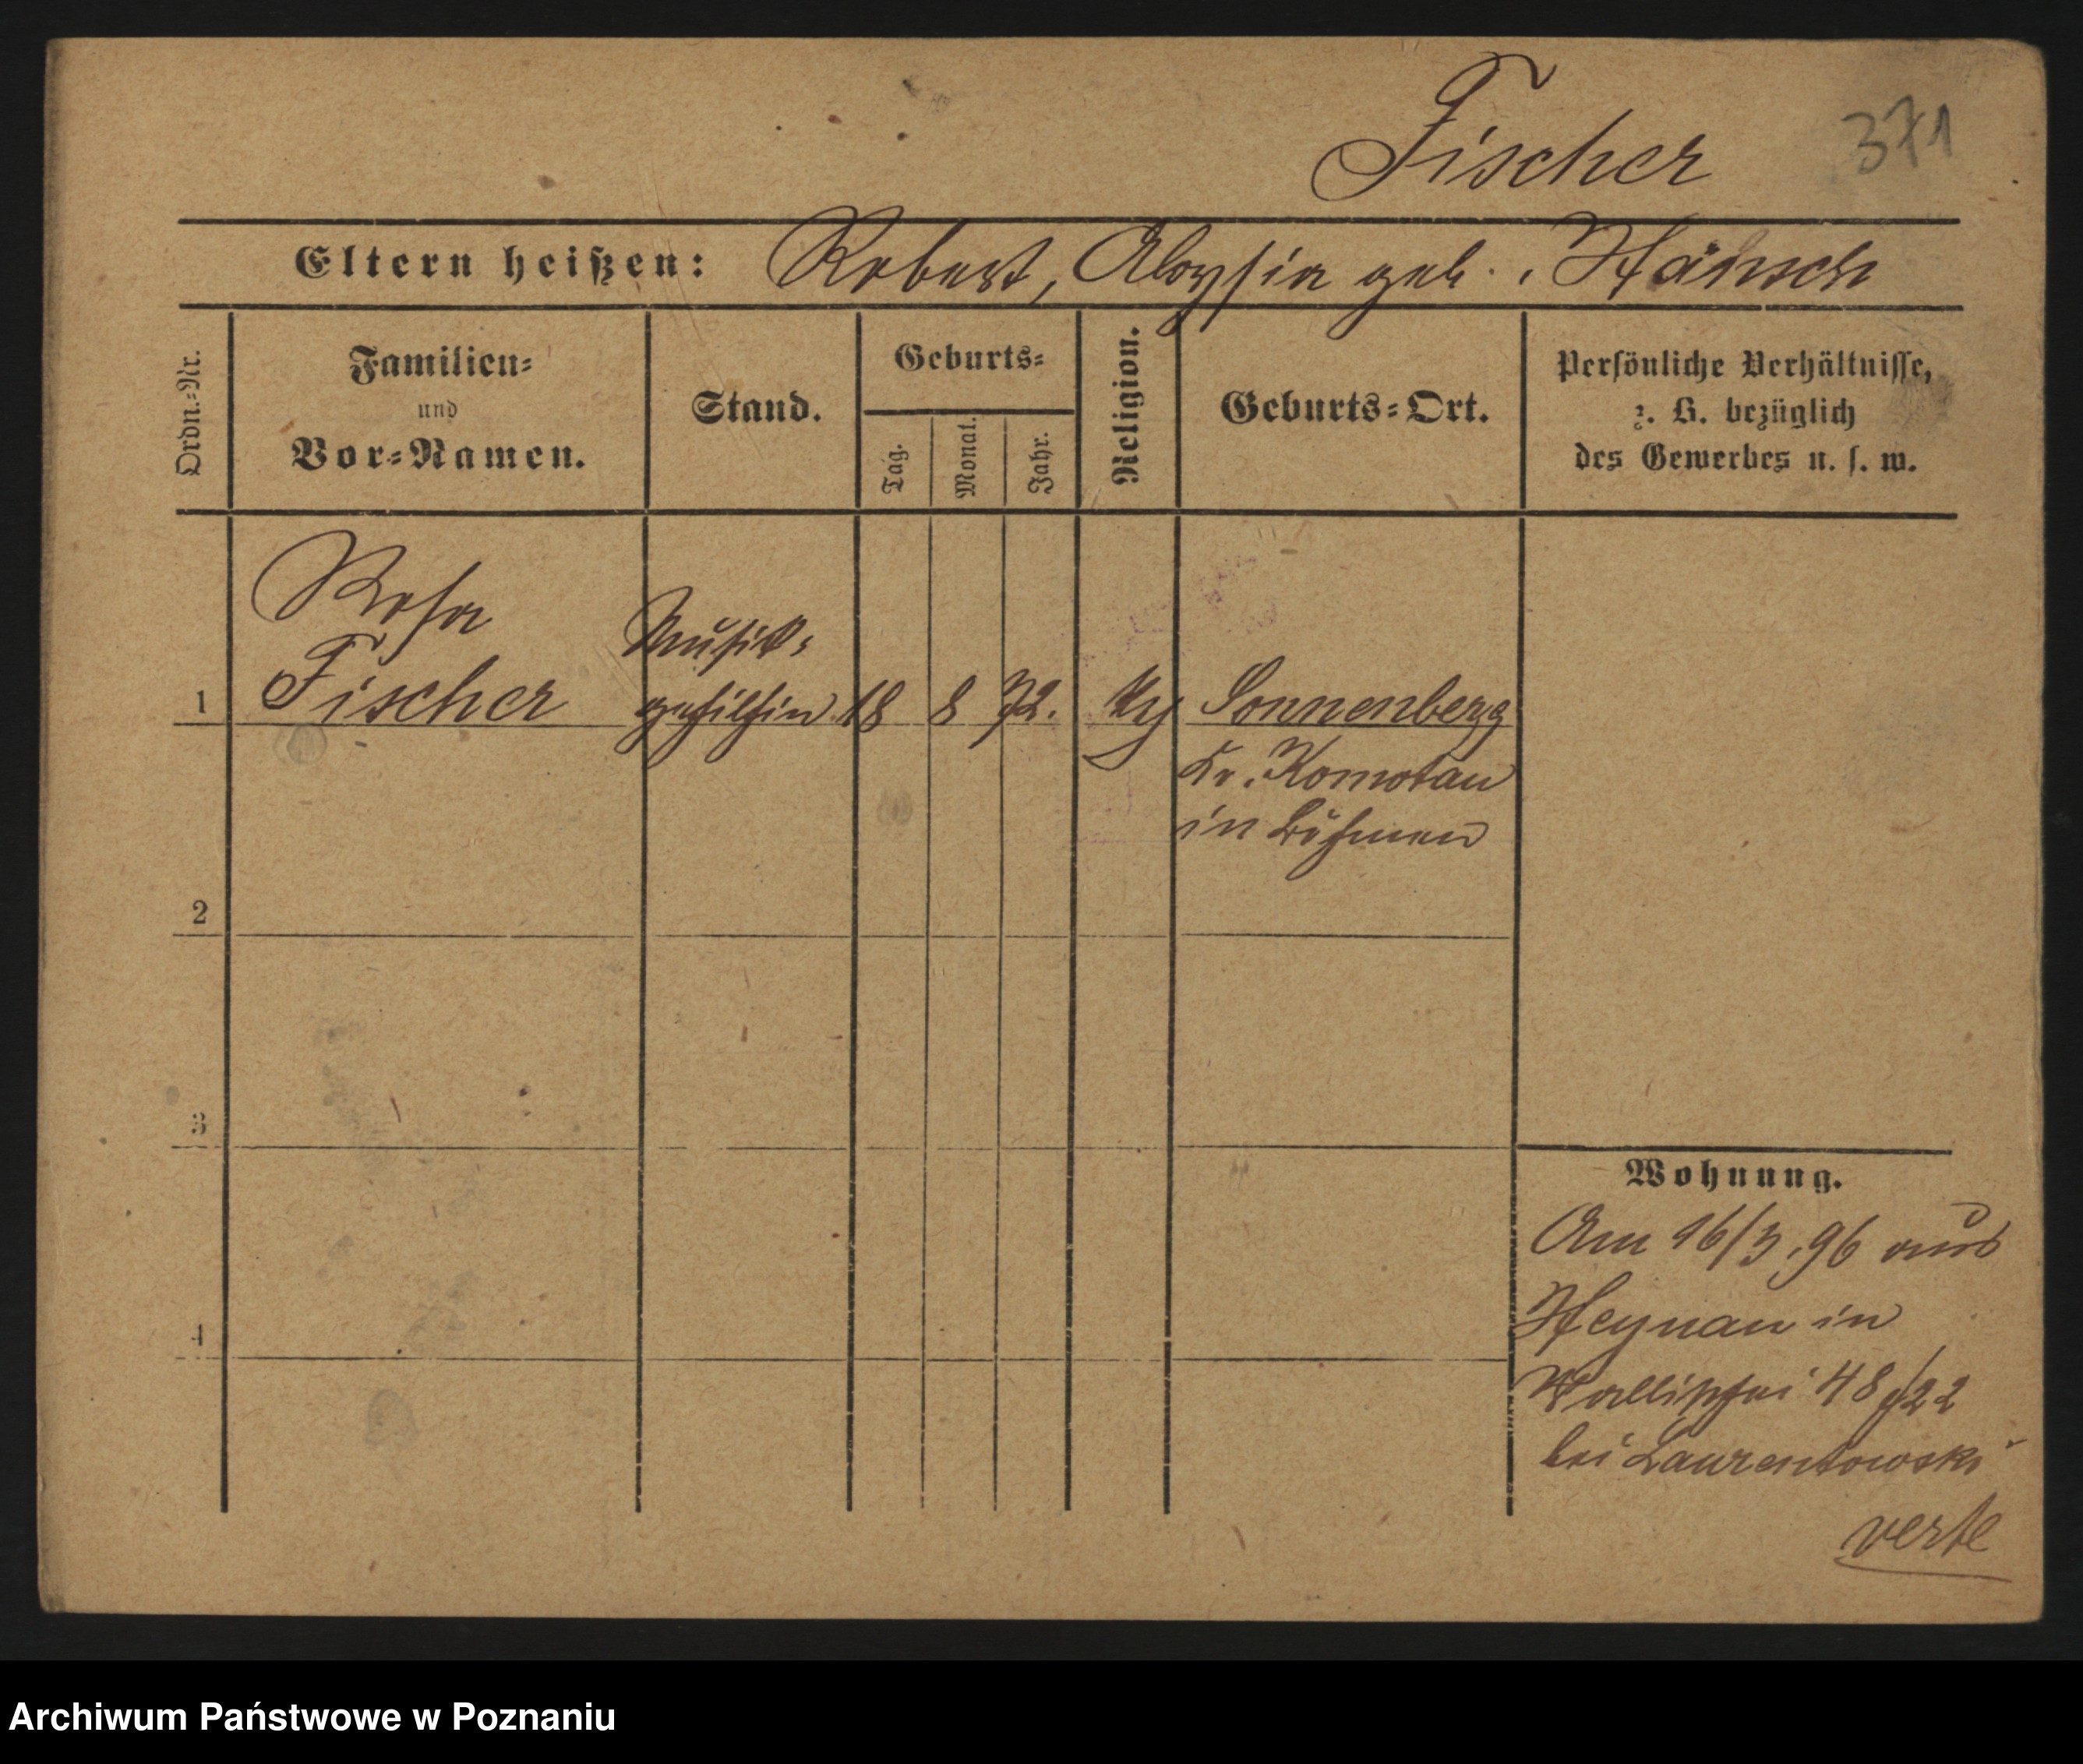 Fischer
371
Eltern heißen: Robert, Aloysia geb. Hähsch
Ordn.-Nr.
Familien-
und
Vor-Namen.
Stand.
Geburts-
Tag.
Monat.
Jahr.
Religion.
Geburts-Ort.
Persönliche Verhältnisse,
z. B. bezüglich
des Gewerbes u. s. w.
Rosa
Fischer
Musik-
gehilfin
1
18 8 72.
Sonnenberg
Kr. Komotau
in Böhmen
2
3
4
Wohnung.
Am 16/3.96 aus
Heynau in
Wallischei 48/22
bei Laurentowski
verte
Archiwum Państwowe w Poznaniu